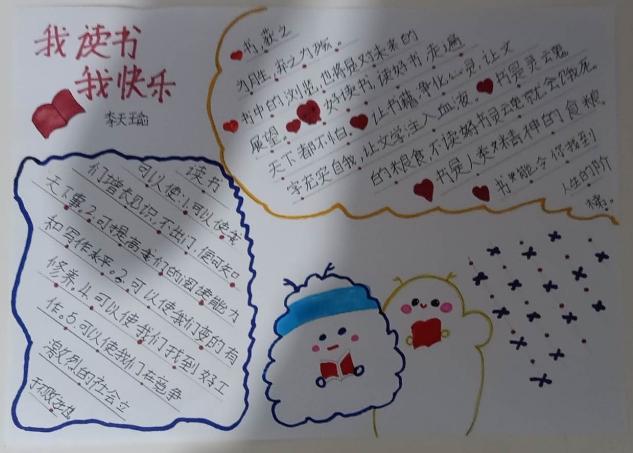 我读书
我快乐
李天瑜
书,获之
为胜,弃之为败。
书中的浏览,也将是对未来的
展望。好读书,读好书,走遍
天下都不怕。让书籍净化心灵,让文
字充实自我,让文学主入血液。书是灵云鬼
的粮食,不读好书灵云鬼就会饿死。
书是人类对精神的食粮。
书能令你找到
人生的阶
梯。
读书
可以使:1.可以使我
们增长见识,不出门,便可知
天下事。2.可提高我们的阅读能力
和写作水平。3.可以使我们变的有
修养。4.可以使我们找到好工
作。5.可以使我们在竞争
激烈的社会立
于不败之地